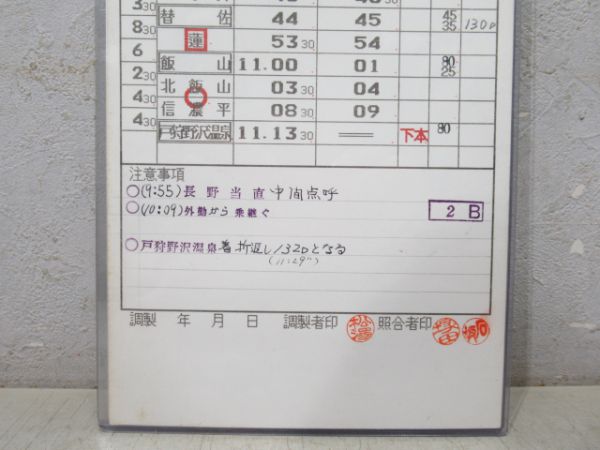 3 30
替佐 44 45 45 35 130D
8 30
蓮 53 30 54
6
飯山 11.00 01 80 25
2 30
北飯山 03 30 04
4 30
信濃平 08 30 09
4 30
戸狩野沢温泉 11.13 30 下本 80
注意事項
○(9:55)長野当直中間点呼
○(10:09)外勤から乗継ぐ 2 B
○戸狩野沢温泉着折返し132Dとなる
(11:29")
調製 年 月 日 調製者印 照合者印